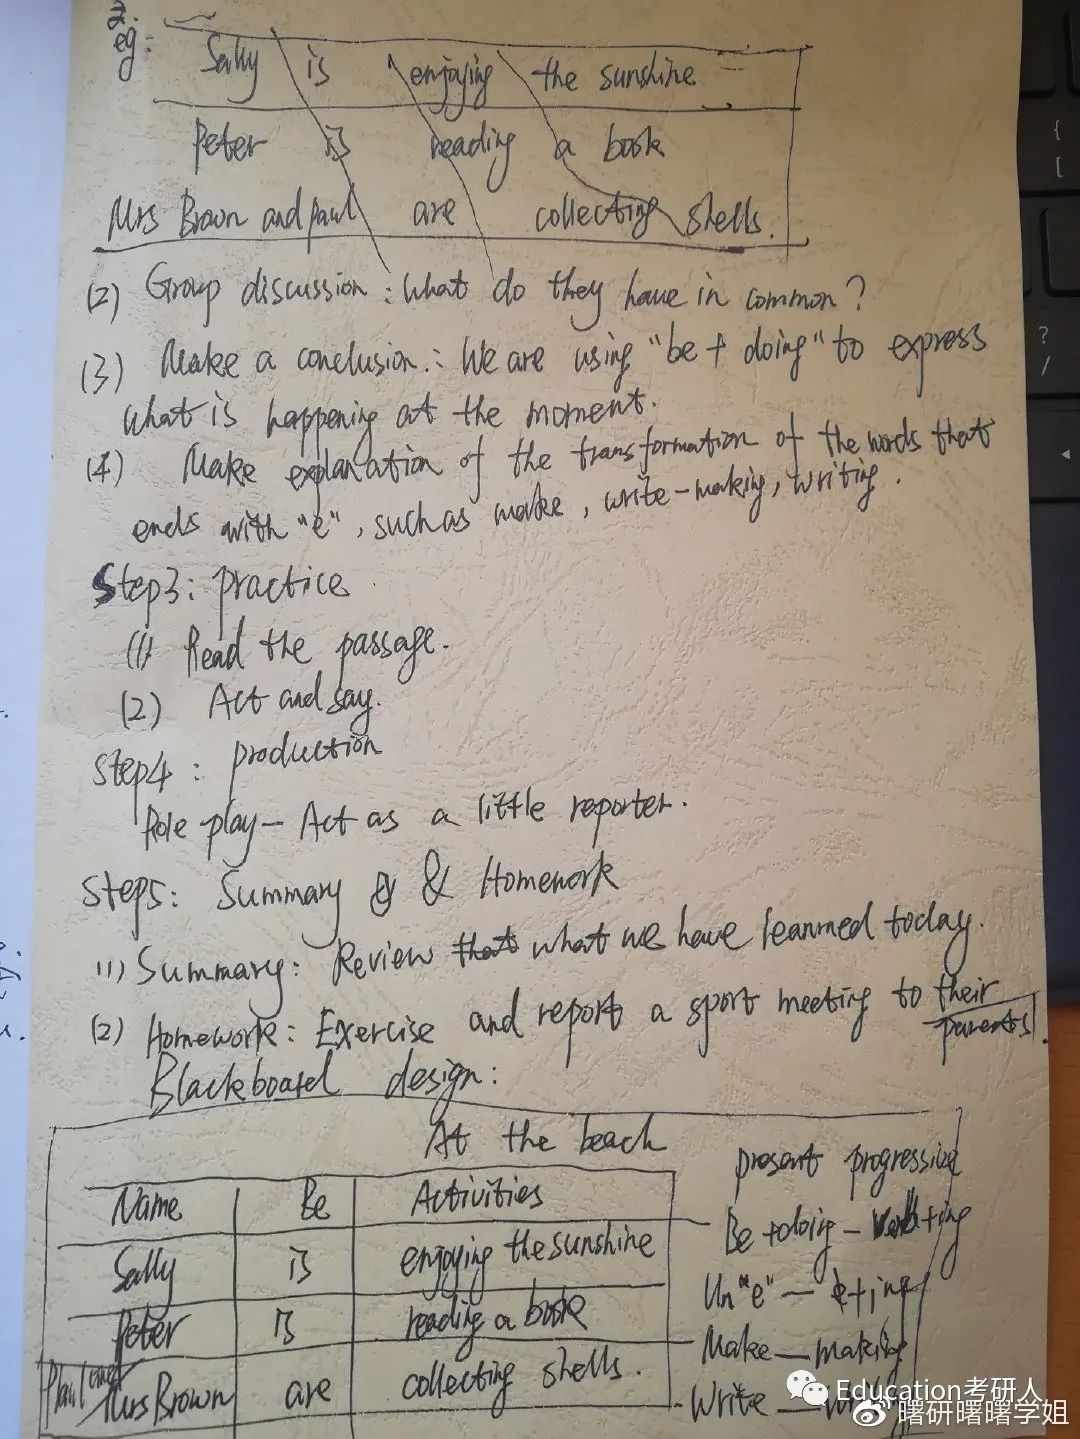 2.
eg:
Sally is enjoying the sunshine
Peter is reading a book
Mrs Brown and Paul are collecting shells.
(2) Group discussion: What do they have in common?
(3) Make a conclusion: We are using "be + doing" to express
what is happening at the moment.
(4) Make explanation of the transformation of the words that
ends with "e", such as make, write-making, writing.
Step3: practice
(1) Read the passage.
(2) Act and say.
Step4: production
Role play - Act as a little reporter.
Step5: Summary & Homework
(1) Summary: Review that what we have learned today.
(2) Homework: Exercise and report a sport meeting to their
parents.
Blackboard design:
At the beach
Name Be Activities
Sally is enjoying the sunshine
Peter is reading a book
Mrs Brown are collecting shells.
present progressive
Be + doing -
"e"
Make - making
Write -
Education考研人
曙研曙曙学姐